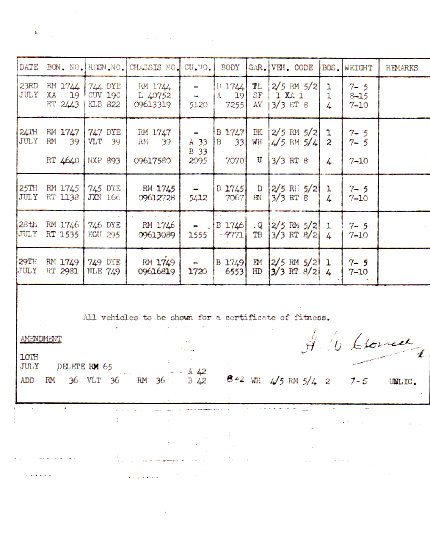 DATE BON. NO. REGN.NO. CHASSIS NO. CU.NO. BODY GAR. VEH. CODE BOS. WEIGHT REMARKS
23RD RM 1744 744 DYE RM 1744 - B 1744 TL 2/5 RM 5/2 1 7- 5
JULY XA 19 CUV 19C L 40752 - A 19 SF 1 XA 1 1 8-15
RT 2443 KLB 822 09613319 5120 7255 AV 3/3 RT 8 4 7-10
24TH RM 1747 747 DYE RM 1747 - B 1747 BK 2/5 RM 5/2 1 7- 5
JULY RM 39 VLT 39 RM 39 A 33 B 33 WH 4/5 RM 5/4 2 7- 5
B 33
RT 4640 NXP 893 09617580 2095 7070 U 3/3 RT 8 4 7-10
25TH RM 1745 745 DYE RM 1745 - B 1745 D 2/5 RM 5/2 1 7- 5
JULY RT 1138 JXN 166 09612728 5412 7067 HN 3/3 RT 8 4 7-10
28th RM 1746 746 DYE RM 1746 - B 1746 Q 2/5 RM 5/2 1 7- 5
JULY RT 1535 KGU 295 09613089 1555 9771 TB 3/3 RT 8/2 4 7-10
29TH RM 1749 749 DYE RM 1749 - B 1749 2/5 RM 5/2 1 7- 5
JULY RT 2981 NLE 749 09616819 1720 6553 HD 3/3 RT 8/2 4 7-10
All vehicles to be shown for a certificate of fitness.
AMENDMENT
10TH
JULY DELETE RM 65
A 42
ADD RM 36 VLT 36 RM 36 B 42 B42 WH 4/5 RM 5/4 2 7-5 UNLIC.